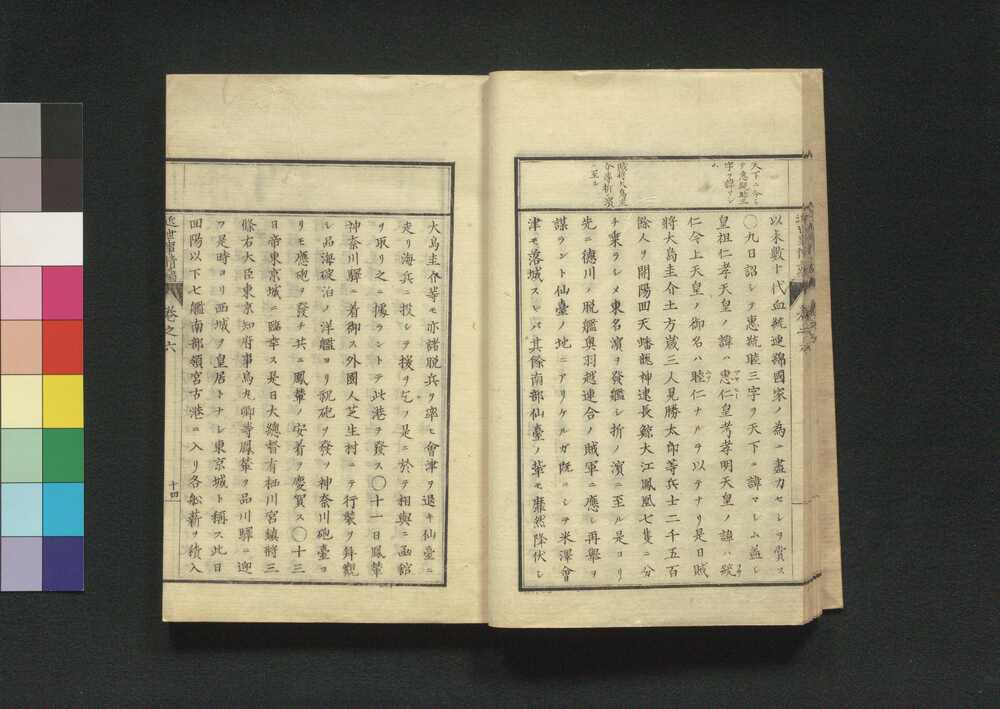 天下ニ令シ
テ惠統睦三
字ヲ諱マシ
ム
賊将大鳥圭
介等折ノ濱
ニ至ル
以来數十代血統連綿國家ノ為ニ盡力セシヲ賞ス
〇九日詔シテ惠統睦三字ヲ天下ニ諱マシム蓋シ
皇祖仁孝天皇ノ諱ハ惠仁皇考孝明天皇ノ諱ハ統
仁今上天皇ノ御名ハ睦仁ナルヲ以テナリ是日賊
将大鳥圭介土方歳三人見勝太郎等兵士二千五百
餘人ヲ開陽回天蟠龍神速長鯨大江鳳凰七隻ニ分
チ乗ラシメ東名濱ヲ發艦シ折ノ濱ニ至ル是ヨリ
先ニ德川ノ脱艦奥羽越連合ノ賊軍ニ應シ再擧ヲ
謀ラント仙臺ノ地ニアリケルガ既ニシテ米澤會
津モ落城スレバ其餘南部仙臺ノ輩モ靡然降伏シ
大鳥圭介等モ亦諸脱兵ヲ率ヒ會津ヲ退キ仙臺ニ
走リ海兵ニ投シテ援ヲ乞フ是ニ於テ相與ニ函館
ヲ取リ之ニ據ラントテ此港ヲ發ス〇十一日鳳輦
神奈川驛ニ着御ス外國人芝生村ニテ行装ヲ拜觀
シ品海碇泊ノ洋艦ヨリ祝砲ヲ發ツ神奈川砲臺ヨ
リモ應砲ヲ發チ共ニ鳳輦ノ安着ヲ慶賀ス〇十三
日帝東京城ニ臨幸ス是日大總督有栖川宮鎮将三
條右大臣東京知府事烏丸卿等鳳輦ヲ品川驛ニ迎
フ是時ヨリ西城ヲ皇居トナシ東京城ト稱ス此日
回陽以下七艦南部領宮古港ニ入リ各船薪ヲ積入
巻之六
十四